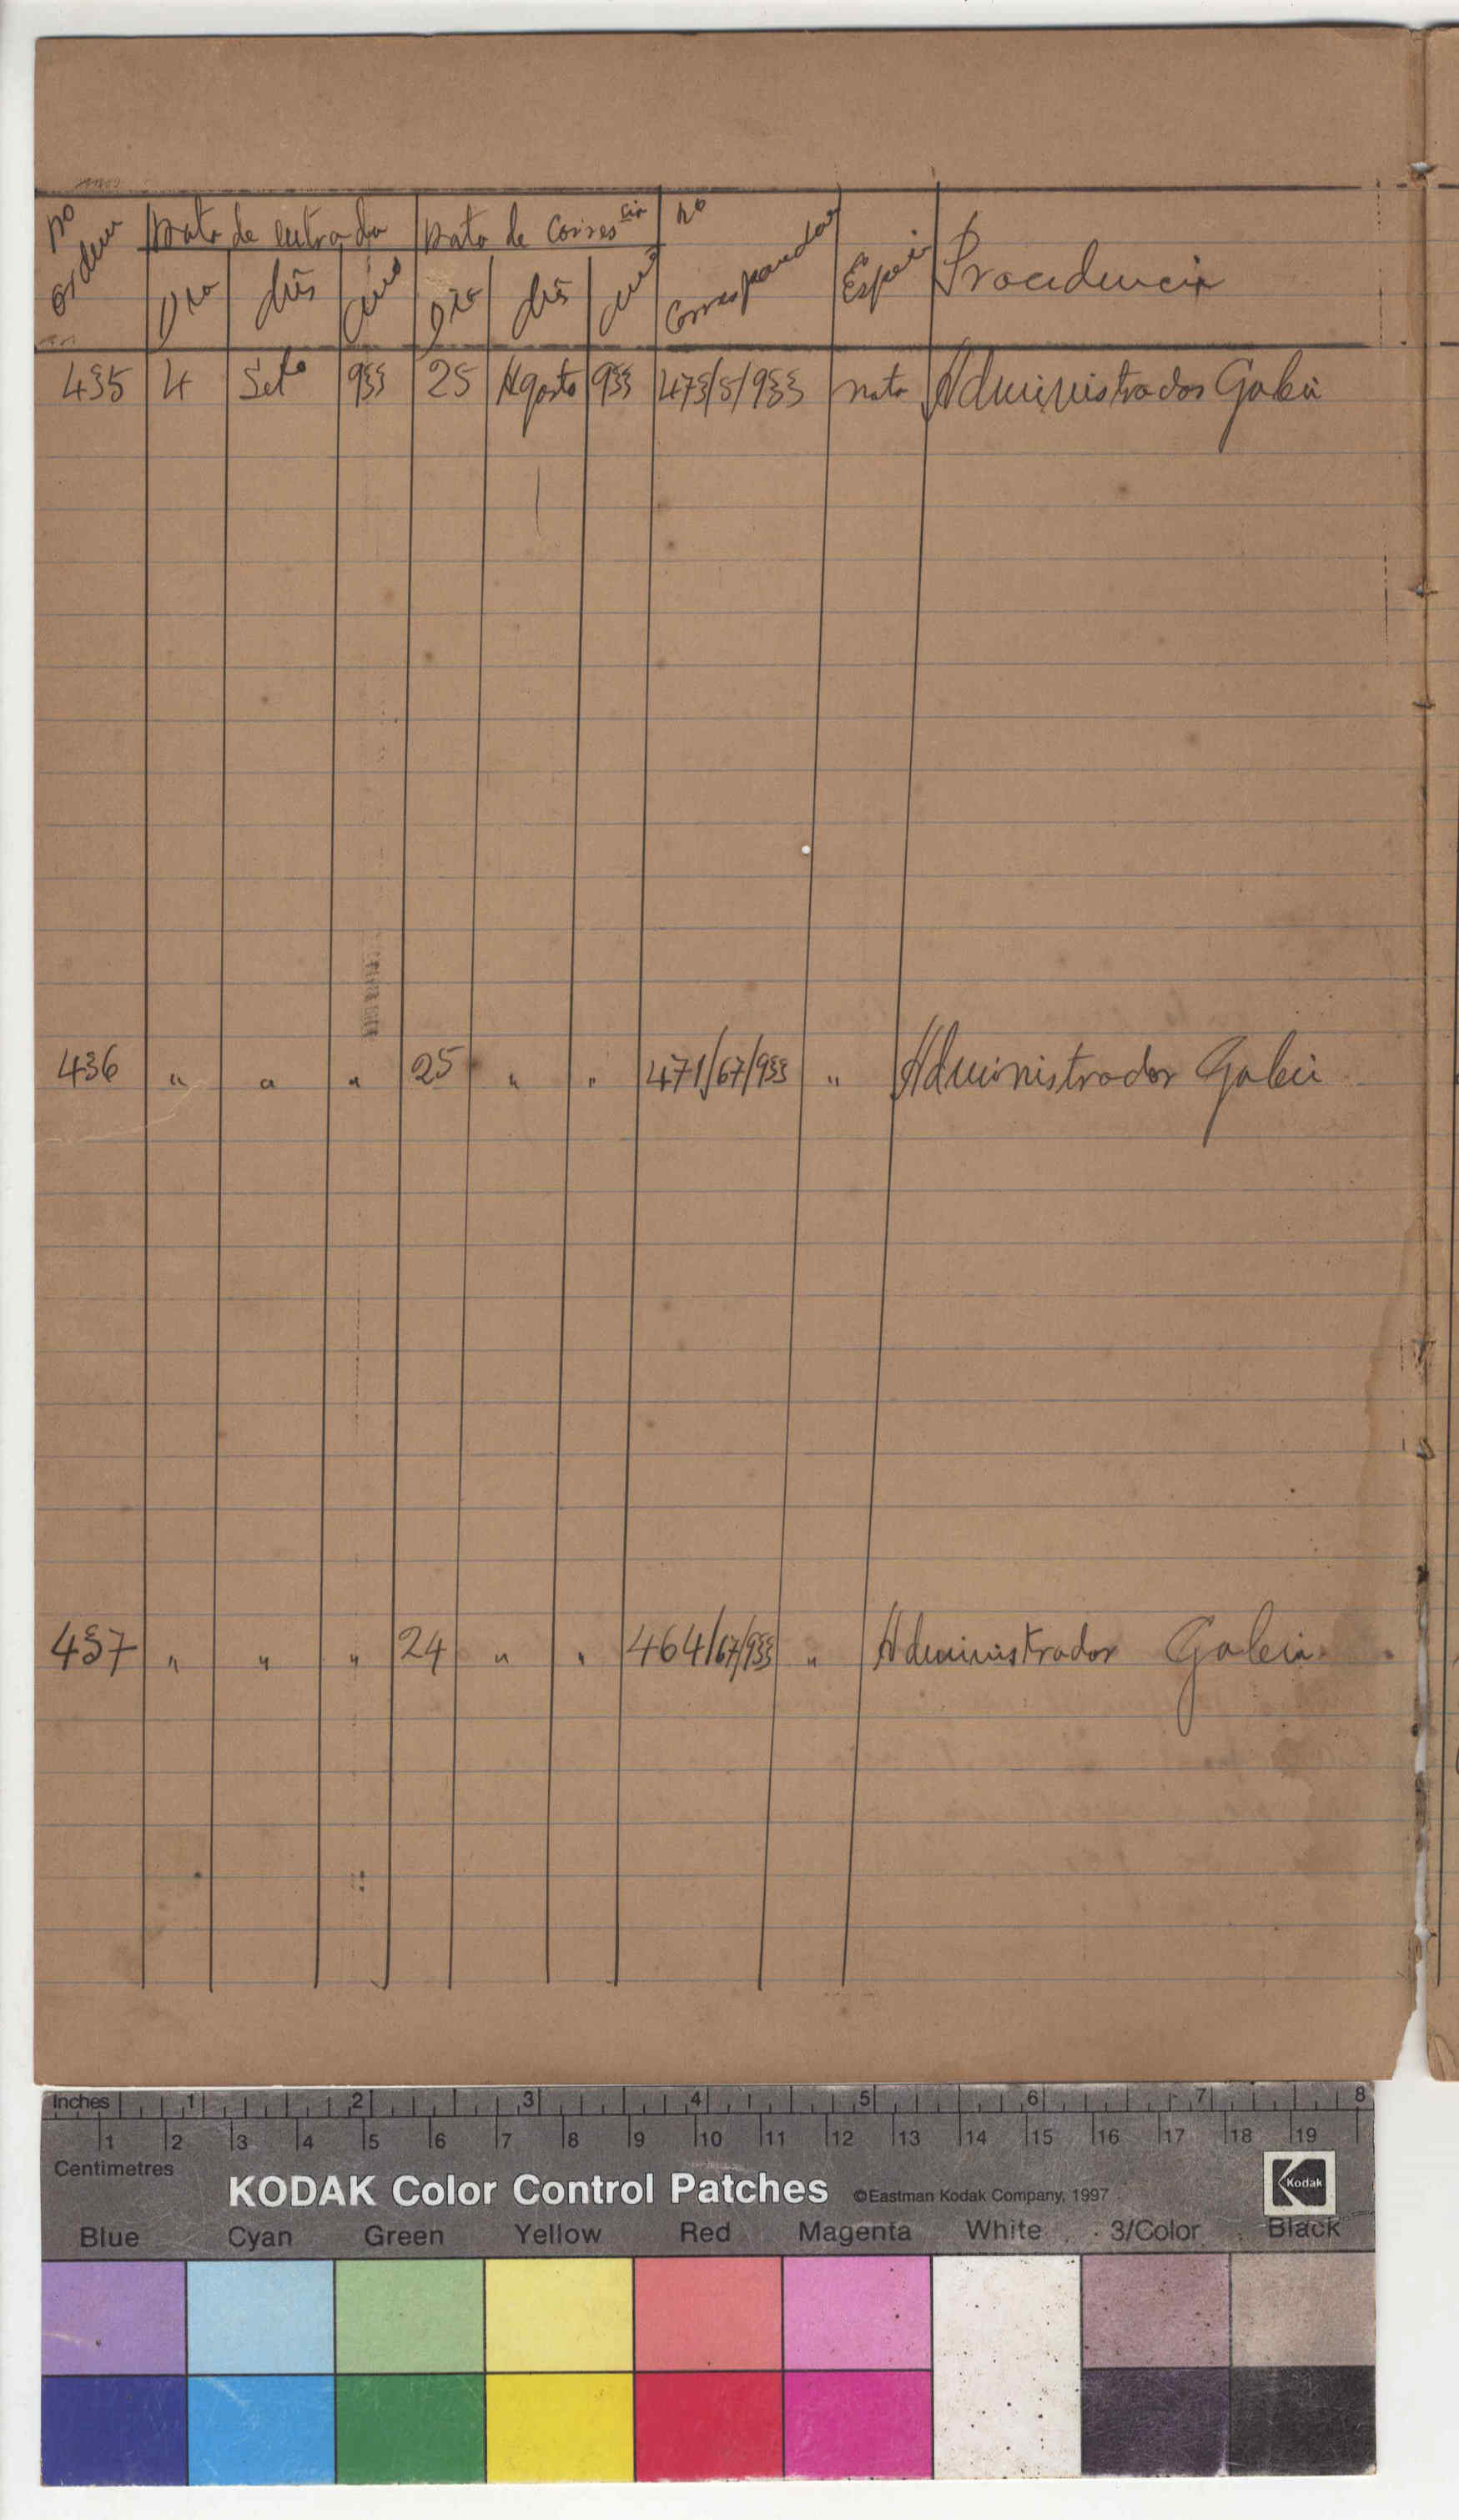 nº ordem Data de entrada Data de Corres cia nº Correspondar Espei Procidencia
Dia Mês Ano Dia Mês Ano
435 4 Setº 933 25 Agosto 933 473/5/933 nota Administrador Gabú
436 " " " 25 " " 471/67/933 " Administrador Gabú
437 " " " 24 " " 464/67/933 " Administrador Gabú
Inches 1 2 3 4 5 6 7 8
1 2 3 4 5 6 7 8 9 10 11 12 13 14 15 16 17 18 19
Centimetres
KODAK Color Control Patches ©Eastman Kodak Company, 1997 Kodak
Blue Cyan Green Yellow Red Magenta White 3/Color Black